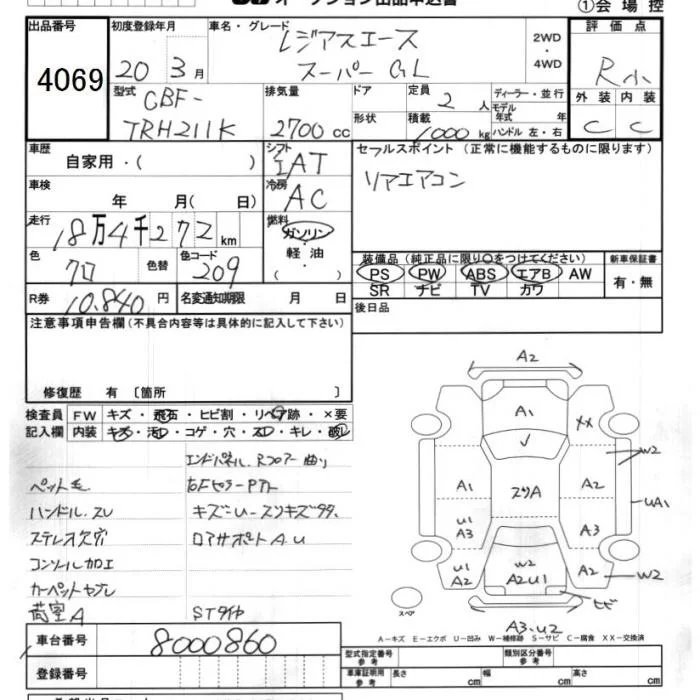 オークション出品申込書
①会場控
出品番号 4069
初度登録年月 20年 3月
車名・グレード レジアスエース スーパーGL
2WD・4WD
評価点 R小
型式 CBF-TRH211K
排気量 2700cc
ドア
形状
定員 2人
積載 1000kg
ディーラー・並行
モデル年式 年式
ハンドル 左・右
外装 内装
C C
車歴 自家用・( )
シフト IAT
セールスポイント (正常に機能するものに限ります)
リアエアコン
車検 年 月( 日)
冷房 AC
走行 18万4千272km
燃料 ガソリン・軽油・( )
色 クロ 色替
色コード 209
装備品(純正品に限り○をつけてください)
新車保証書
PS PW ABS エアB AW
SR ナビ TV カワ
有・無
R券 10,840円
名変通知期限 月 日
後日品
注意事項申告欄(不具合内容等は具体的に記入して下さい)
修復歴 有〔箇所 〕
検査員記入欄
FW キズ・飛石・ヒビ割・リペア跡・×要
内装 キズ・汚レ・コゲ・穴・スレ・キレ・破レ
エンドパネル、Rフロアー曲り
ペット毛
ハンドルスレ
キズ-U-スリキズタタ
ステレオ欠穴
ロアサポートAU
コンソール加工
カーペットヤブレ
荷室A
STタイヤ
A2
A1
XX
W2
A1
スリA
A2
UA1
U1
A3
A3
U1
A2
W2
A2U1
A2
W2
ヒビ
スペア
A3・U2
A-キズ E-エクボ U-凹み W-補修跡 S-サビ C-腐食 XX-交換済
車台番号 8000860
登録番号
型式指定番号 参考
類別区分番号 参考
車庫証明用 参考
長さ cm 幅 cm 高さ cm